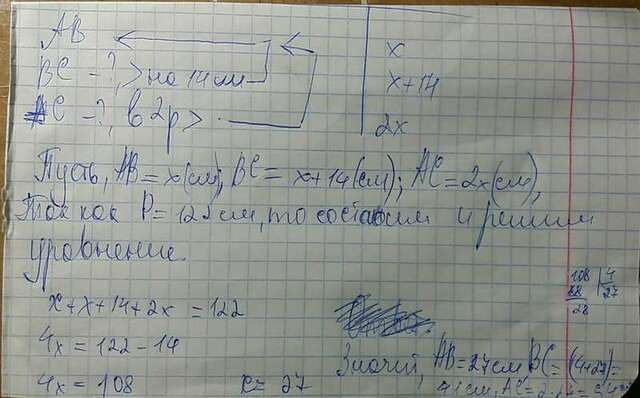 AB
x
BC - ?, > на 14 см
x+14
AC - ?, в 2р >
2x
Пусть, AB = x(см), BC = x+14(см); AC = 2x(см),
Так как P = 122 см, то составим и решим
уравнение.
108 | 4
88 | 27
28
x+x+14+2x = 122
4x = 122-14
Значит, AB=27см BC= (14+27)=
4x = 108 x= 27
41см, AC=2·27=54см